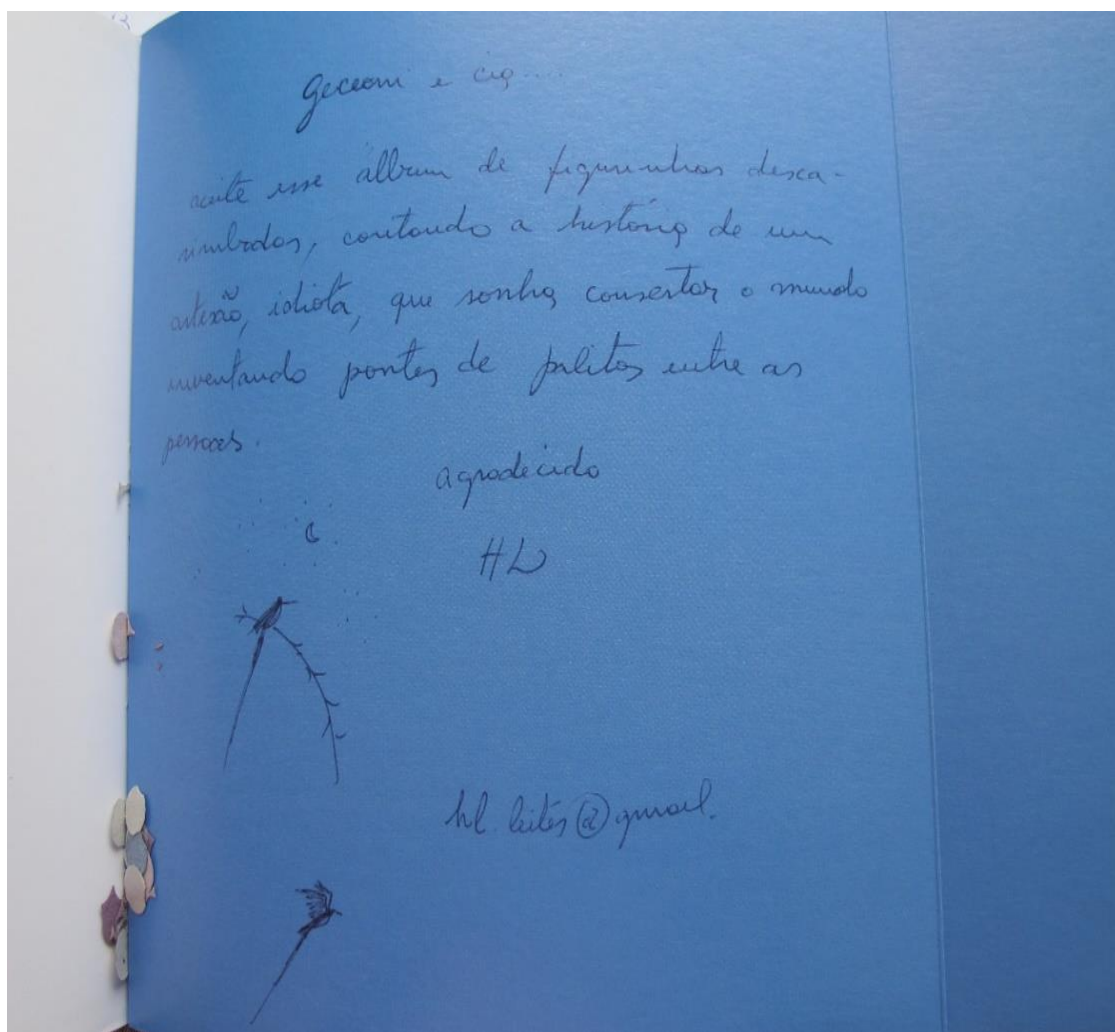 Geceoni e cia....
aceite esse álbum de figurinhas desca-
rimbadas, contando a história de um
artesão, idiota, que sonha consertar o mundo
inventando pontes de palitos entre as
pessoas.
agradecido
HL
hl.leites@gmail.